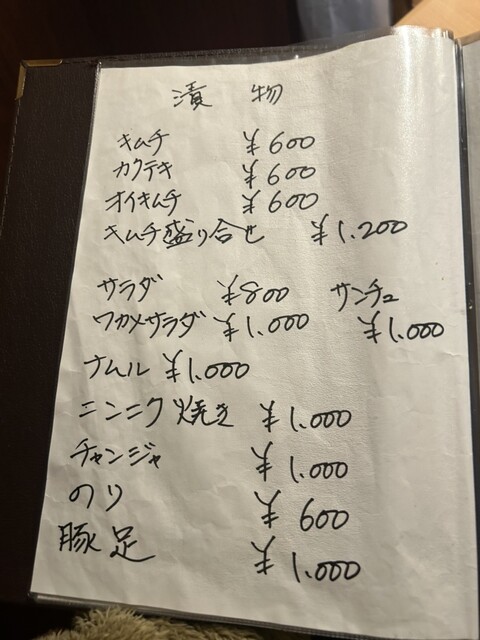 漬物
キムチ ¥600
カクテキ ¥600
オイキムチ ¥600
キムチ盛り合せ ¥1.200
サラダ ¥800 サンチュ
ワカメサラダ ¥1.000 ¥1.000
ナムル ¥1.000
ニンニク焼き ¥1.000
チャンジャ ¥1.000
のり ¥600
豚足 ¥1.000